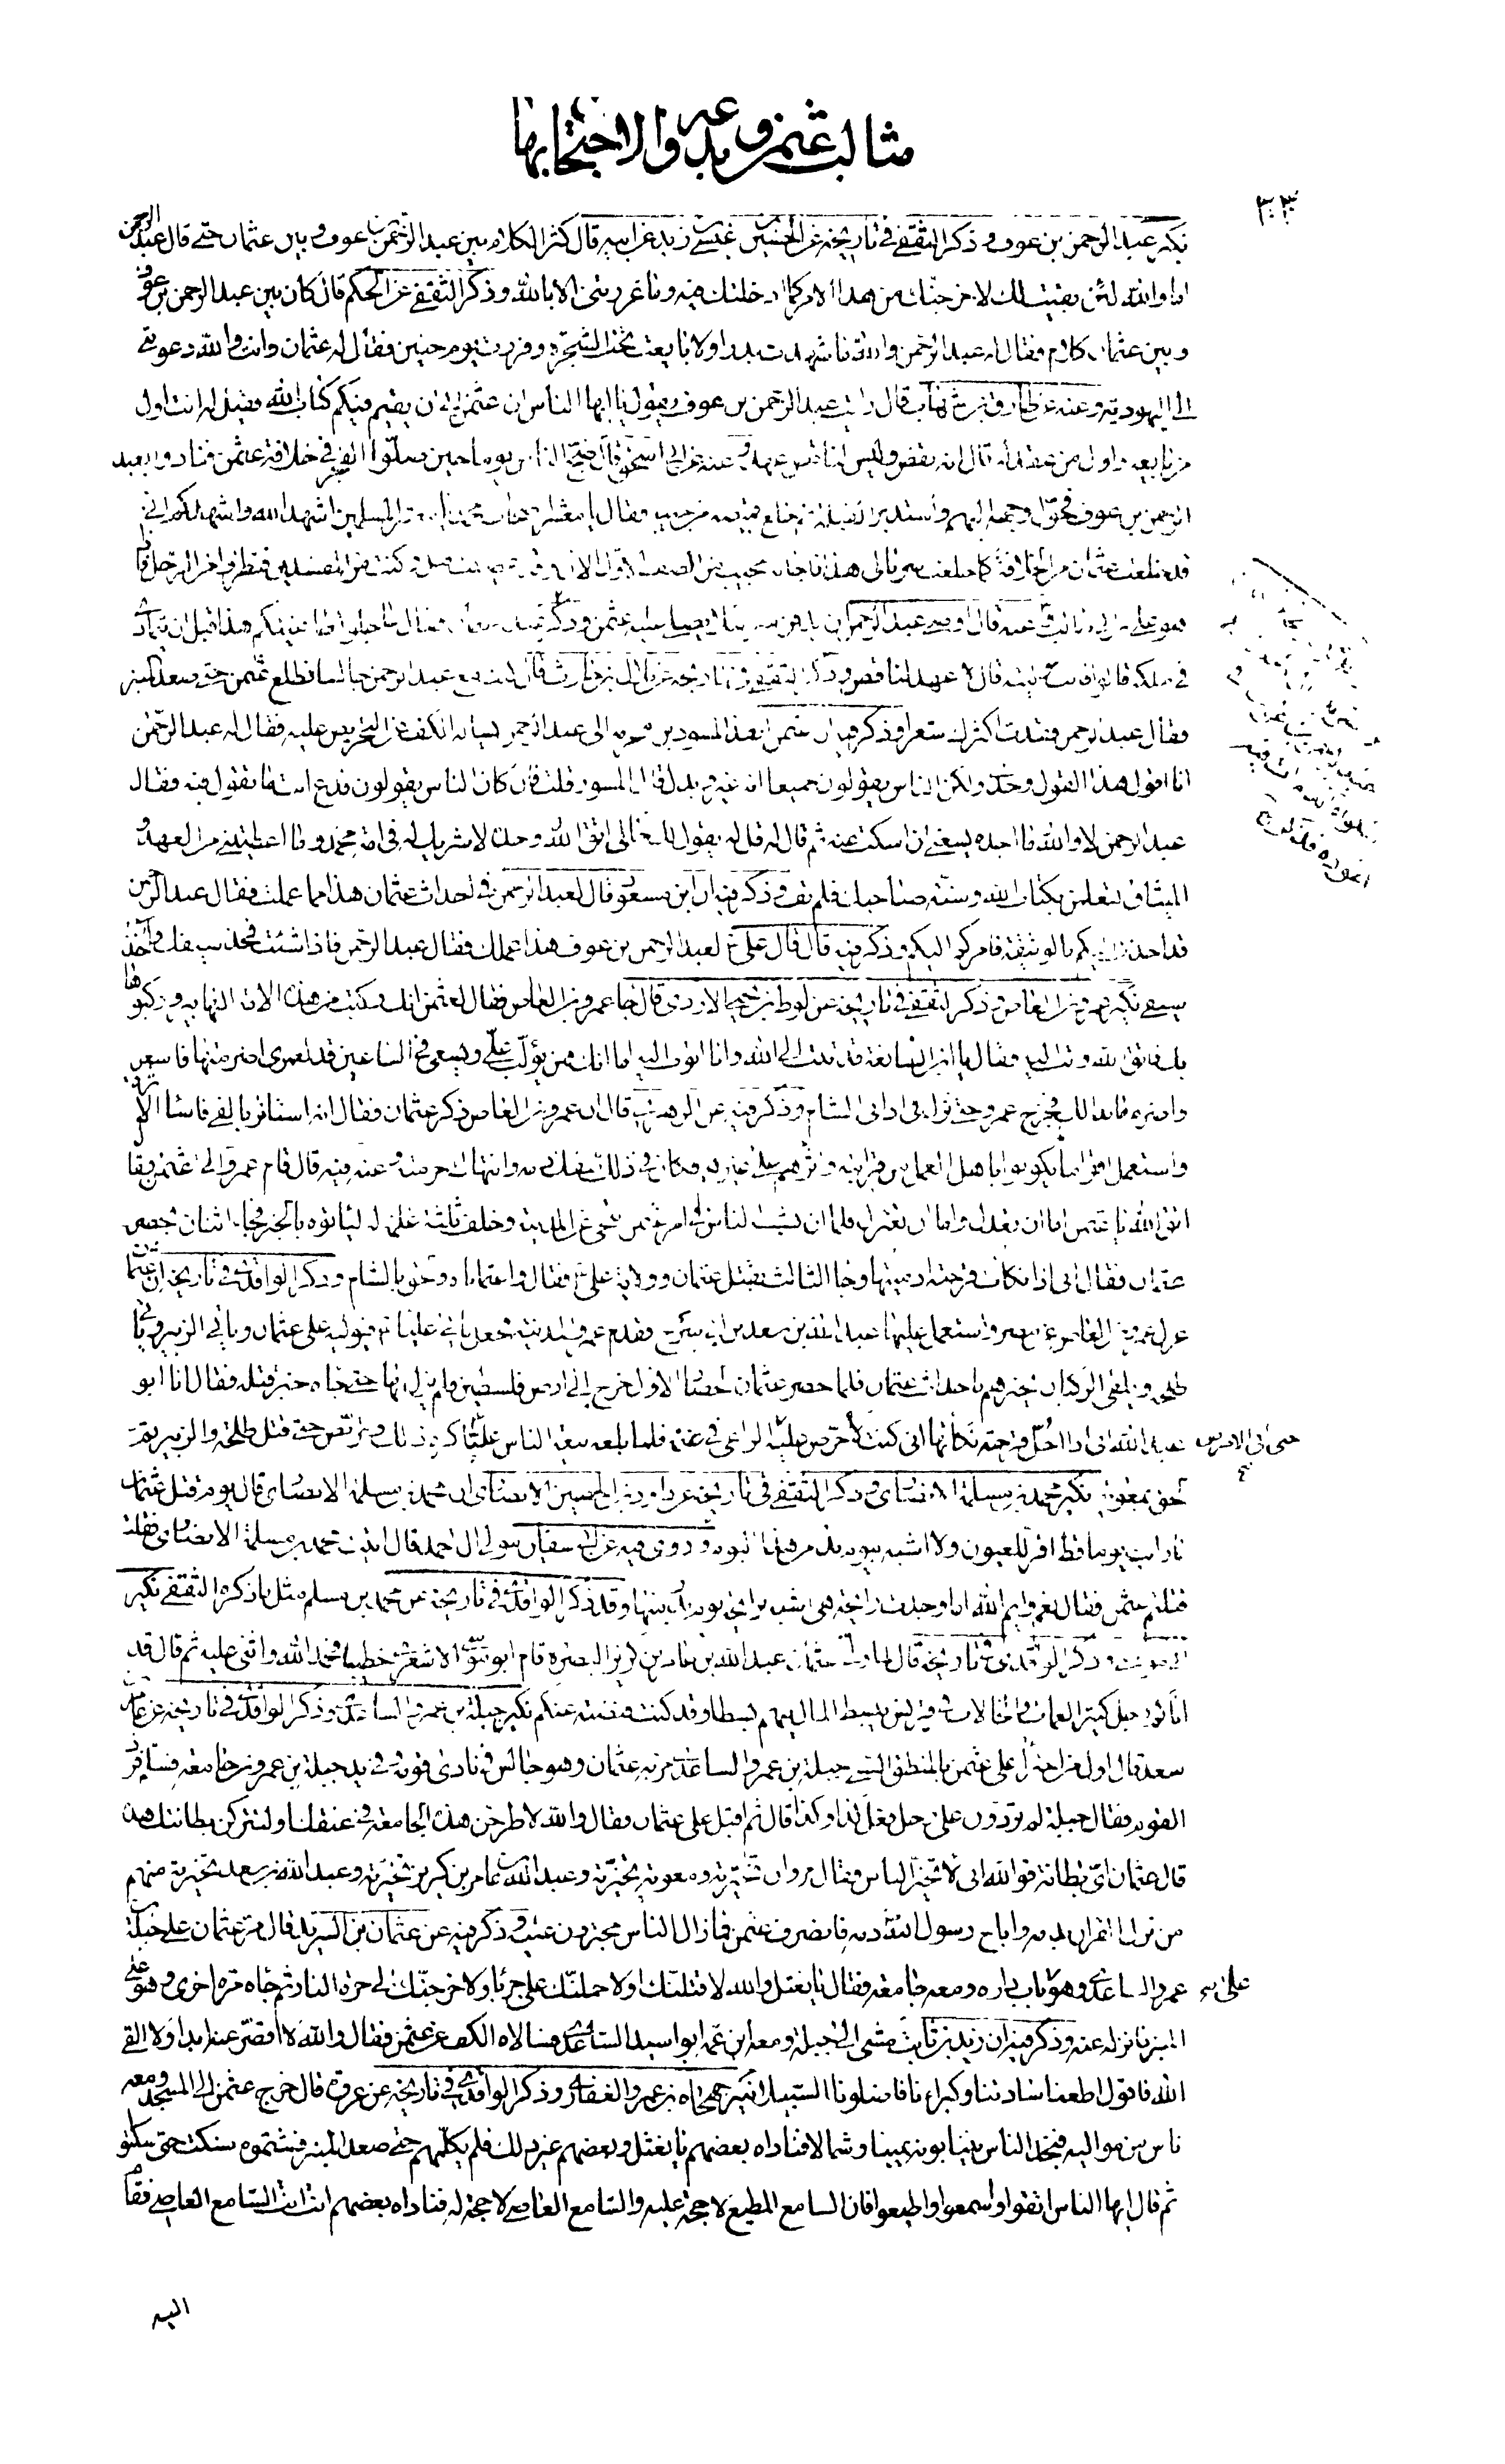 مثالب عثمن وبدعه والاحتجاج بها
٣٣٠
نكير عبد الرحمن بن عوف وذكر الثقفي في تاريخه عن الحسين بن عيسى بن زيد عن ابيه قال كثر الكلام بين عبد الرحمن بن عوف وبين عثمان حتى قال عبد الرحمن
اما والله لئن بقيت لك لاخرجنك من هذا الامر كما ادخلتك فيه وما غررتني الا بالله وذكر الثقفي عن الحكم قال كان بين عبد الرحمن بن عوف
وبين عثمان كلام فقال له عبد الرحمن والله ما شهدت بدرا ولا بايعت تحت الشجرة وفررت يوم حنين فقال له عثمان وانت والله دعوتني
الى اليهودية وعنه عن طارق بن شهاب قال رايت عبد الرحمن بن عوف يقول يا ايها الناس ان عثمن ابى ان يقيم فيكم كتاب الله فقيل له انت اول
من بايعه واول من عقد له قال انه نقض وليس لناقض عهد وعنه عن ابي اسحق قال ضج الناس يوما حين صلوا الفجر في خلافة عثمن فنادوا بعبد
الرحمن بن عوف فحول وجهه اليهم واستدبر القبلة ثم خلع قميصه من جيبه فقال يا معشر اصحاب محمد يا معشر المسلمين اشهد الله واشهدكم اني
قد خلعت عثمان من الخلافة كما خلعت سربالي هذا فاجابه مجيب من الصف الاول الان وقد عصيت قبل وكنت من المفسدين فنظروا من الرجل فاذا
هو علي بن ابي طالب وعنه قال اوصى عبد الرحمن ان يدفن سرا لئلا يصلي عليه عثمن وذكر
في ملكه قال
فقال عبد الرحمن فقدت اكثرك شعرا وذكر فيه ان عثمن انفذ المسور بن مخرمة الى عبد الرحمن يسأله الكف عن التحريض عليه فقال له عبد الرحمن
انا اقول هذا القول وحدي ولكن الناس يقولون جميعا انه غير وبدل قال المسور قلت فان كان الناس يقولون فدع انت ما تقول فيه فقال
عبد الرحمن لا والله ما اجده يسعني ان اسكت عنه ثم قال له قل له يقول لك خالي اتق الله وحده لا شريك له في امة محمد وما اعطيتني من العهد و
الميثاق لتعملن بكتاب الله وسنة صاحبيك فلم تف وذكر فيه ان ابن مسعود قال لعبد الرحمن في احداث عثمان هذا مما عملت فقال عبد الرحمن
قد اخذت اليكم بالوثيقة فامركم اليكم وذكر فيه قال قال علي ع لعبد الرحمن بن عوف هذا عملك فقال عبد الرحمن فاذا شئت فخذ سيفك وآخذ
سيفي نكير عمرو بن العاص وذكر الثقفي في تاريخه عن لوط بن يحيى الازدي قال جاء عمرو بن العاص فقال لعثمن انك ركبت من هذه الامة النهابير وركبوها
بك فاتق الله وتب اليه فقال يا ابن النابغة قد تبت الى الله وانا اتوب اليه اما انك ممن يؤلب علي ويسعى في الساعين قد لعمري اضرمتها فاسعر
واضرم ما بدا لك فخرج عمرو حتى نزل في اداني الشام وذكر فيه عن الزهري قال ان عمرو بن العاص ذكر عثمان فقال انه استاثر بالفيء فاساء الاثرة
واستعمل اقواما لم يكونوا باهل العمل من قرابته واثرهم على غيرهم فكان في ذلك سفك دمه وانتهاك حرمته وعنه فيه قال قام عمرو الى عثمن فقال
اتق الله يا عثمن اما ان تعدل واما ان تعتزل فلما ان نشب الناس في امر عثمن تنحى عن المدينة وخلف ثلثة غلمة له لياتوه بالخبر فجاء اثنان بحصر
عثمان فقال اني اذا نكات قرحة ادميتها وجاء الثالث بقتل عثمان وولاية علي ع فقال واعثماناه ولحق بالشام وذكر الواقدي في تاريخه ان عثمان
عزل عمرو بن العاص عن مصر واستعمل عليها عبد الله بن سعد بن ابي سرح فقدم عمرو المدينة فجعل ياتي عليا ع فيؤلبه على عثمان وياتي الزبير وياتي
طلحة ويلقى الركبان يخبرهم باحداث عثمان فلما حصر عثمان الحصار الاول خرج الى ارض فلسطين فلم يزل بها حتى جاءه خبر قتله فقال انا ابو
عبد الله اني اذا احل قرحة نكاتها اني كنت لاحرض عليه الراعي في غنمه فلما بلغه بيعة الناس عليا كره ذلك وتربص حتى قتل طلحة والزبير ثم
لحق بمعوية نكير محمد بن مسلمة الانصاري وذكر الثقفي في تاريخه عن داود بن الحصين الانصاري ان محمد بن مسلمة الانصاري قال يوم قتل عثمان
ما رايت يوما قط اقر للعيون ولا اشبه بيوم بدر من هذا اليوم وروى فيه عن ابي سفيان مولى ال احمد قال اتيت محمد بن مسلمة الانصاري فقلت
قتلتم عثمن فقال نعم وايم الله ما وجدت رائحة هي اشبه برائحة يوم بدر منها وقد ذكر الواقدي في تاريخه عن محمد بن مسلمة مثل ما ذكره الثقفي نكير
ابي موسى وذكر الواقدي في تاريخه قال لما ولى عثمان عبد الله بن عامر بن كريز البصرة قام ابو موسى الاشعري خطيبا فحمد الله واثنى عليه ثم قال قد
اتاكم رجل كثير العمات والخالات في قريش يبسط المال فيهم بسطا وقد كنت قبضته عنكم نكير جبلة بن عمرو الساعدي وذكر الواقدي في تاريخه عن عامر بن
سعد قال اول من اجترأ على عثمن بالمنطق السيئ جبلة بن عمرو الساعدي مر به عثمان وهو جالس في نادي قومه وفي يد جبلة بن عمرو جامعة فسلم فرد
القوم فقال جبلة لم تردون على رجل فعل كذا وكذا قال ثم اقبل على عثمان فقال والله لاطرحن هذه الجامعة في عنقك او لتتركن بطانتك هذه
قال عثمان اي بطانة فوالله اني لا تخير الناس فقال مروان تخيرته ومعوية تخيرته وعبد الله بن عامر بن كريز تخيرته وعبد الله بن سعد تخيرته منهم
من نزل القران بذمه واباح رسول الله دمه فانصرف عثمن فما زال الناس مجترون عليه وذكر فيه عن عثمان بن الشريد قال مر عثمان على جبلة بن
عمرو الساعدي وهو على باب داره ومعه جامعة فقال يا نعثل والله لاقتلنك او لاحملنك على جرباء ولاخرجنك الى حرة النار ثم جاءه مرة اخرى وهو على
المنبر فانزله عنه وذكر فيه ان زيد بن ثابت مشى الى جبلة ومعه ابن عمه ابو اسيد الساعدي فسالاه الكف عن عثمن فقال والله لا اقصر عنه ابدا ولا القى
الله فاقول اطعنا سادتنا وكبراءنا فاضلونا السبيلا نكير جهجاه بن عمرو الغفاري وذكر الواقدي في تاريخه عن عروة قال خرج عثمن الى المسجد ومعه
ناس من مواليه فنجد الناس ينتابونه يمينا وشمالا فناداه بعضهم يا نعثل وبعضهم غير ذلك فلم يكلمهم حتى صعد المنبر فشتموه فسكت حتى سكتوا
ثم قال ايها الناس اتقوا واسمعوا واطيعوا فان السامع المطيع لا حجة عليه والسامع العاصي لا حجة له فناداه بعضهم انت انت السامع العاصي فقام
اليه